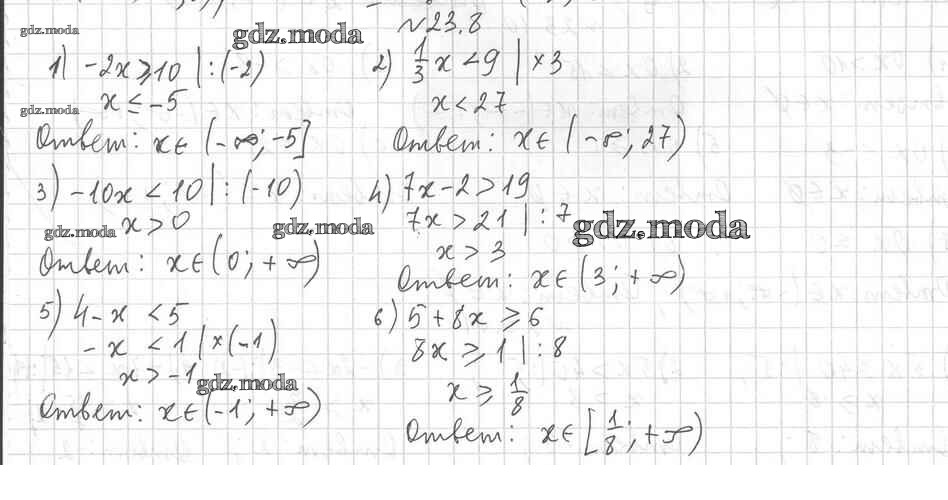 №23.8
gdz.moda
gdz.moda
1) -2x ⩾ 10 | : (-2)
x ≤ -5
gdz.moda
Ответ: x ∈ (-∞; -5]
2) 1/3 x < 9 | × 3
x < 27
Ответ: x ∈ (-∞; 27)
3) -10x < 10 | : (-10)
x > 0
gdz.moda
gdz.moda
Ответ: x ∈ (0; +∞)
4) 7x - 2 > 19
7x > 21 | : 7
gdz.moda
x > 3
Ответ: x ∈ (3; +∞)
5) 4 - x < 5
-x < 1 | × (-1)
x > -1
gdz.moda
Ответ: x ∈ (-1; +∞)
6) 5 + 8x ⩾ 6
8x ⩾ 1 | : 8
x ⩾ 1/8
Ответ: x ∈ [1/8; +∞)